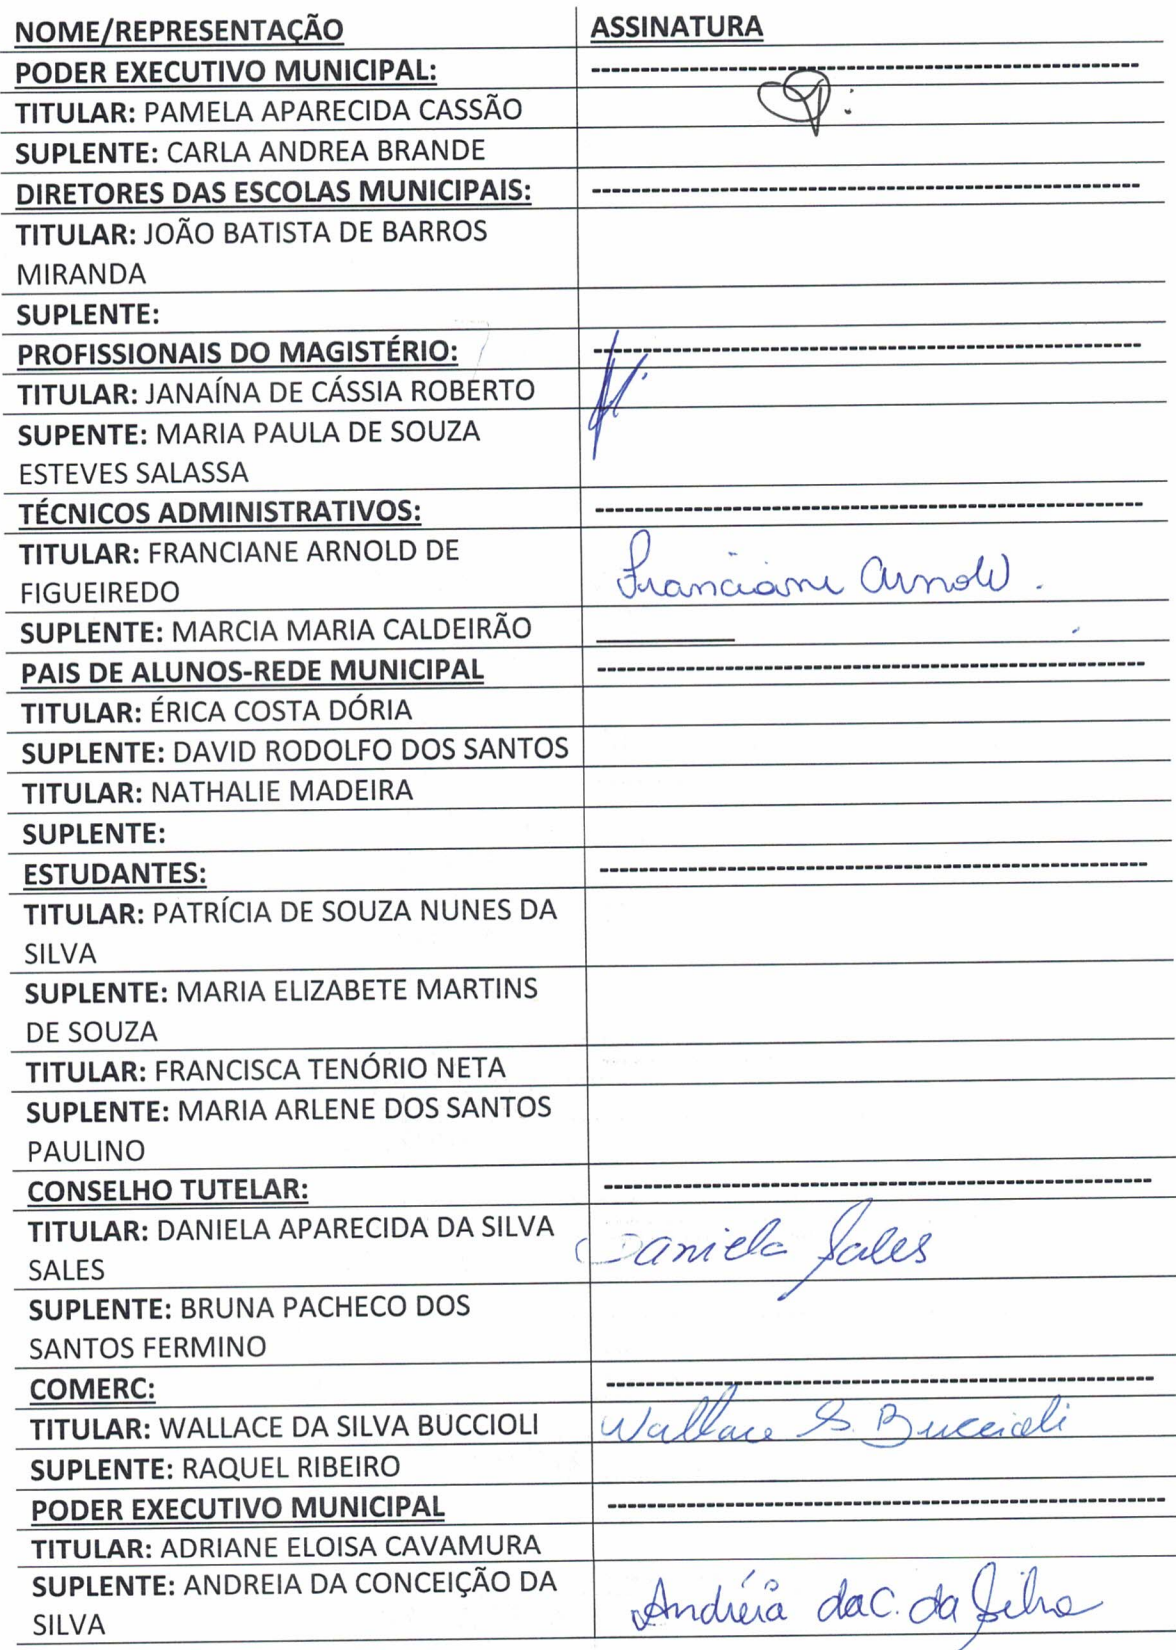 NOME/REPRESENTAÇÃO ASSINATURA
PODER EXECUTIVO MUNICIPAL: ----------------------------------------------------
TITULAR: PAMELA APARECIDA CASSÃO
SUPLENTE: CARLA ANDREA BRANDE
DIRETORES DAS ESCOLAS MUNICIPAIS: ----------------------------------------------------
TITULAR: JOÃO BATISTA DE BARROS
MIRANDA
SUPLENTE:
PROFISSIONAIS DO MAGISTÉRIO: ----------------------------------------------------
TITULAR: JANAÍNA DE CÁSSIA ROBERTO
SUPENTE: MARIA PAULA DE SOUZA
ESTEVES SALASSA
TÉCNICOS ADMINISTRATIVOS: ----------------------------------------------------
TITULAR: FRANCIANE ARNOLD DE
FIGUEIREDO Franciane Arnold.
SUPLENTE: MARCIA MARIA CALDEIRÃO
PAIS DE ALUNOS-REDE MUNICIPAL ----------------------------------------------------
TITULAR: ÉRICA COSTA DÓRIA
SUPLENTE: DAVID RODOLFO DOS SANTOS
TITULAR: NATHALIE MADEIRA
SUPLENTE:
ESTUDANTES: ----------------------------------------------------
TITULAR: PATRÍCIA DE SOUZA NUNES DA
SILVA
SUPLENTE: MARIA ELIZABETE MARTINS
DE SOUZA
TITULAR: FRANCISCA TENÓRIO NETA
SUPLENTE: MARIA ARLENE DOS SANTOS
PAULINO
CONSELHO TUTELAR: ----------------------------------------------------
TITULAR: DANIELA APARECIDA DA SILVA
SALES Daniela Sales
SUPLENTE: BRUNA PACHECO DOS
SANTOS FERMINO
COMERC: ----------------------------------------------------
TITULAR: WALLACE DA SILVA BUCCIOLI Wallace S. Buccioli
SUPLENTE: RAQUEL RIBEIRO
PODER EXECUTIVO MUNICIPAL ----------------------------------------------------
TITULAR: ADRIANE ELOISA CAVAMURA
SUPLENTE: ANDREIA DA CONCEIÇÃO DA
SILVA Andréia da C. da Silva